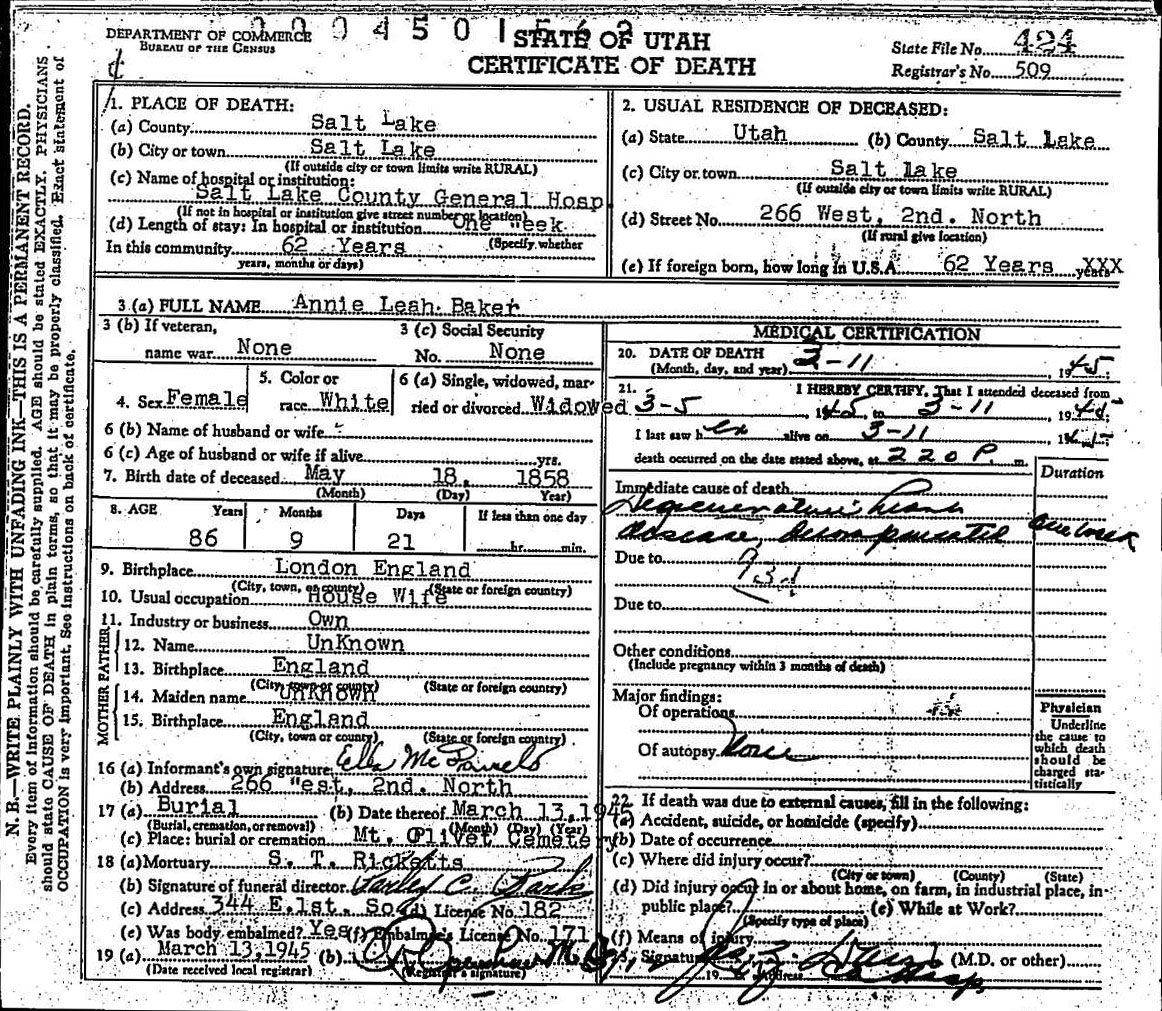 DEPARTMENT OF COMMERCE
BUREAU OF THE CENSUS
STATE OF UTAH
CERTIFICATE OF DEATH
State File No. 424
Registrar's No. 509
N. B.—WRITE PLAINLY WITH UNFADING INK—THIS IS A PERMANENT RECORD.
Every item of information should be carefully supplied. AGE should be stated EXACTLY. PHYSICIANS
should state CAUSE OF DEATH in plain terms, so that it may be properly classified. Exact statement of
OCCUPATION is very important. See instructions on back of certificate.
1. PLACE OF DEATH:
(a) County Salt Lake
(b) City or town Salt Lake
(If outside city or town limits write RURAL)
(c) Name of hospital or institution:
Salt Lake County General Hosp
(If not in hospital or institution give street number or location)
(d) Length of stay: In hospital or institution One Week
(Specify whether
In this community 62 Years
years, months or days)
2. USUAL RESIDENCE OF DECEASED:
(a) State Utah (b) County Salt Lake
(c) City or town Salt Lake
(If outside city or town limits write RURAL)
(d) Street No. 266 West, 2nd. North
(If rural give location)
(e) If foreign born, how long in U.S.A. 62 Years years XXX
3 (a) FULL NAME Annie Leah. Baker
3 (b) If veteran, name war None
3 (c) Social Security No. None
4. Sex Female
5. Color or race White
6 (a) Single, widowed, married or divorced Widowed
6 (b) Name of husband or wife
6 (c) Age of husband or wife if alive yrs.
7. Birth date of deceased May 18, 1858
(Month) (Day) Year)
8. AGE Years Months Days If less than one day
86 9 21 hr. min.
9. Birthplace London England
(City, town, or county) (State or foreign country)
10. Usual occupation House Wife
11. Industry or business Own
FATHER
12. Name UnKnown
13. Birthplace England
(City, town or county) (State or foreign country)
MOTHER
14. Maiden name UnKnown
15. Birthplace England
(City, town or county) (State or foreign country)
16 (a) Informant's own signature Ella
(b) Address 266 "est, 2nd. North
17 (a) Burial (b) Date thereof March 13, 1945
(Burial, cremation, or removal) (Month) (Day) (Year)
(c) Place: burial or cremation Mt. Olivet Cemetery
18 (a) Mortuary S. T. Ricketts
(b) Signature of funeral director
(c) Address 344 E. 1st. So (d) License No. 182
(e) Was body embalmed? Yes (f) Embalmer's License No. 171
19 (a) March 13, 1945 (b)
(Date received local registrar) (Registrar's signature)
MEDICAL CERTIFICATION
20. DATE OF DEATH 3-11, 1945
(Month, day, and year)
21. I HEREBY CERTIFY, That I attended deceased from
3-5, 1945 to 3-11, 194
I last saw her alive on 3-11, 1945
death occurred on the date stated above, at 2 20 P. m.
Duration
Immediate cause of death
Degenerative heart
disease, decompensated one week
Due to 93d
Due to
Other conditions
(Include pregnancy within 3 months of death)
Major findings:
Of operations
Of autopsy None
Physician
Underline
the cause to
which death
should be
charged sta-
tistically
22. If death was due to external causes, fill in the following:
(a) Accident, suicide, or homicide (specify)
(b) Date of occurrence
(c) Where did injury occur?
(City or town) (County) (State)
(d) Did injury occur in or about home, on farm, in industrial place, in-
public place? (e) While at Work?
(Specify type of place)
(f) Means of injury
Signature (M.D. or other)
19 Address